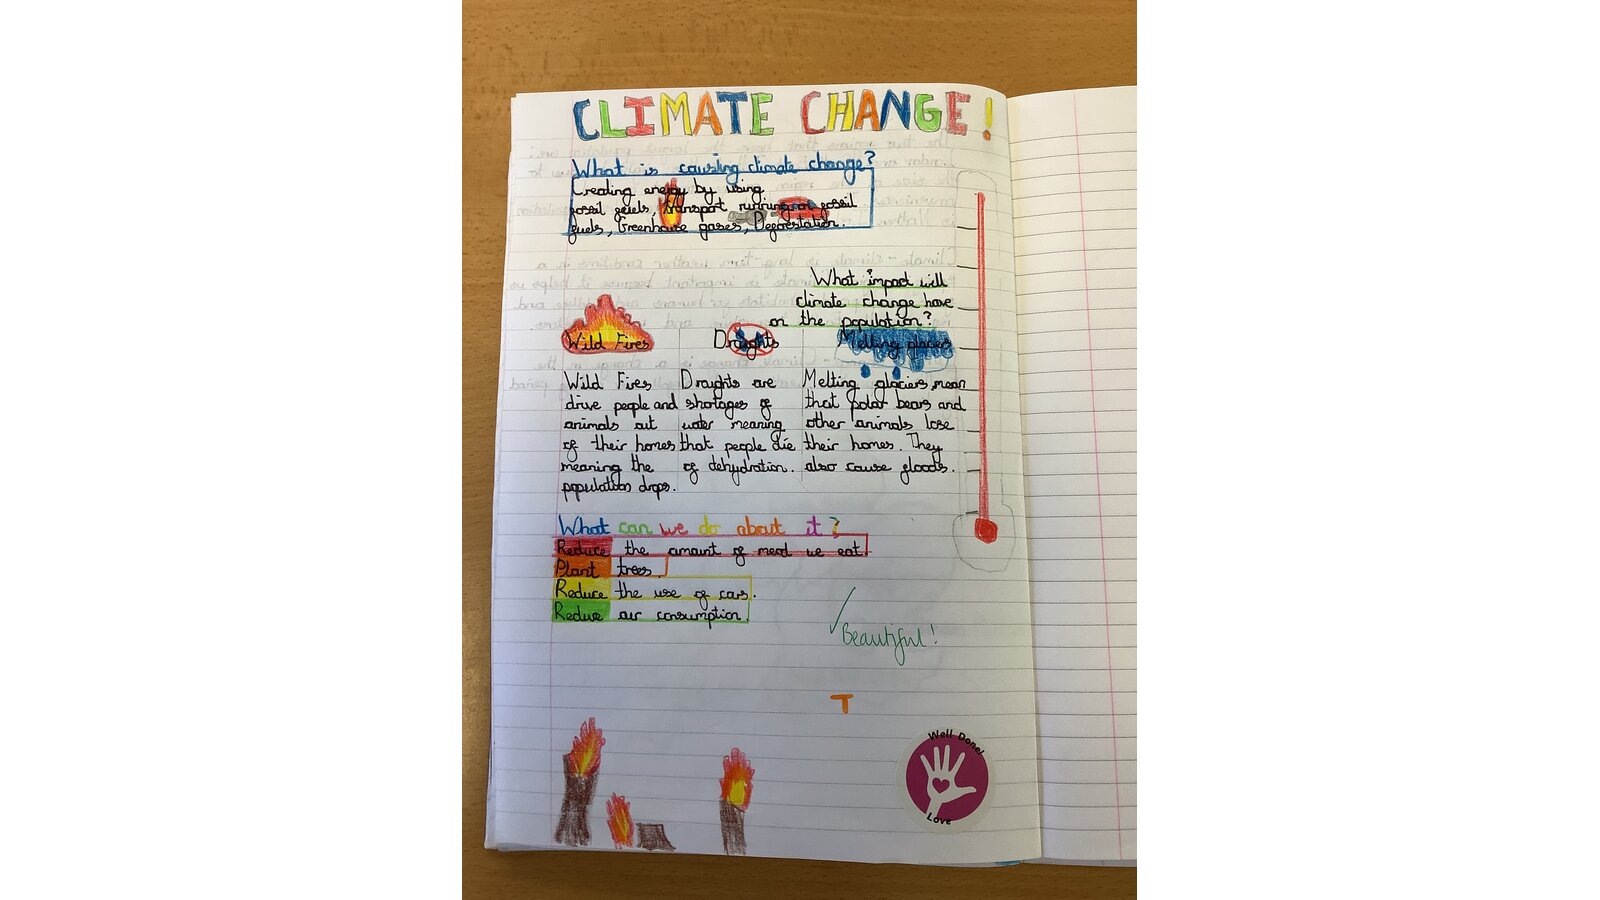 CLIMATE CHANGE!
What is causing climate change?
Creating energy by using
fossil fuels, transport running on fossil
fuels, Greenhouse gases, Deforestation.
What impact will
climate change have
on the population?
Wild Fires
Draughts
Melting glaciers
Wild Fires
drive people and
animals out
of their homes
meaning the
population drops.
Draughts are
shortages of
water meaning
that people die
of dehydration.
Melting glaciers, mean
that polar bears and
other animals lose
their homes. They
also cause floods.
What can we do about it?
Reduce the amount of meat we eat.
Plant trees.
Reduce the use of cars.
Reduse air consumption.
Beautiful!
T
Well Done!
Love